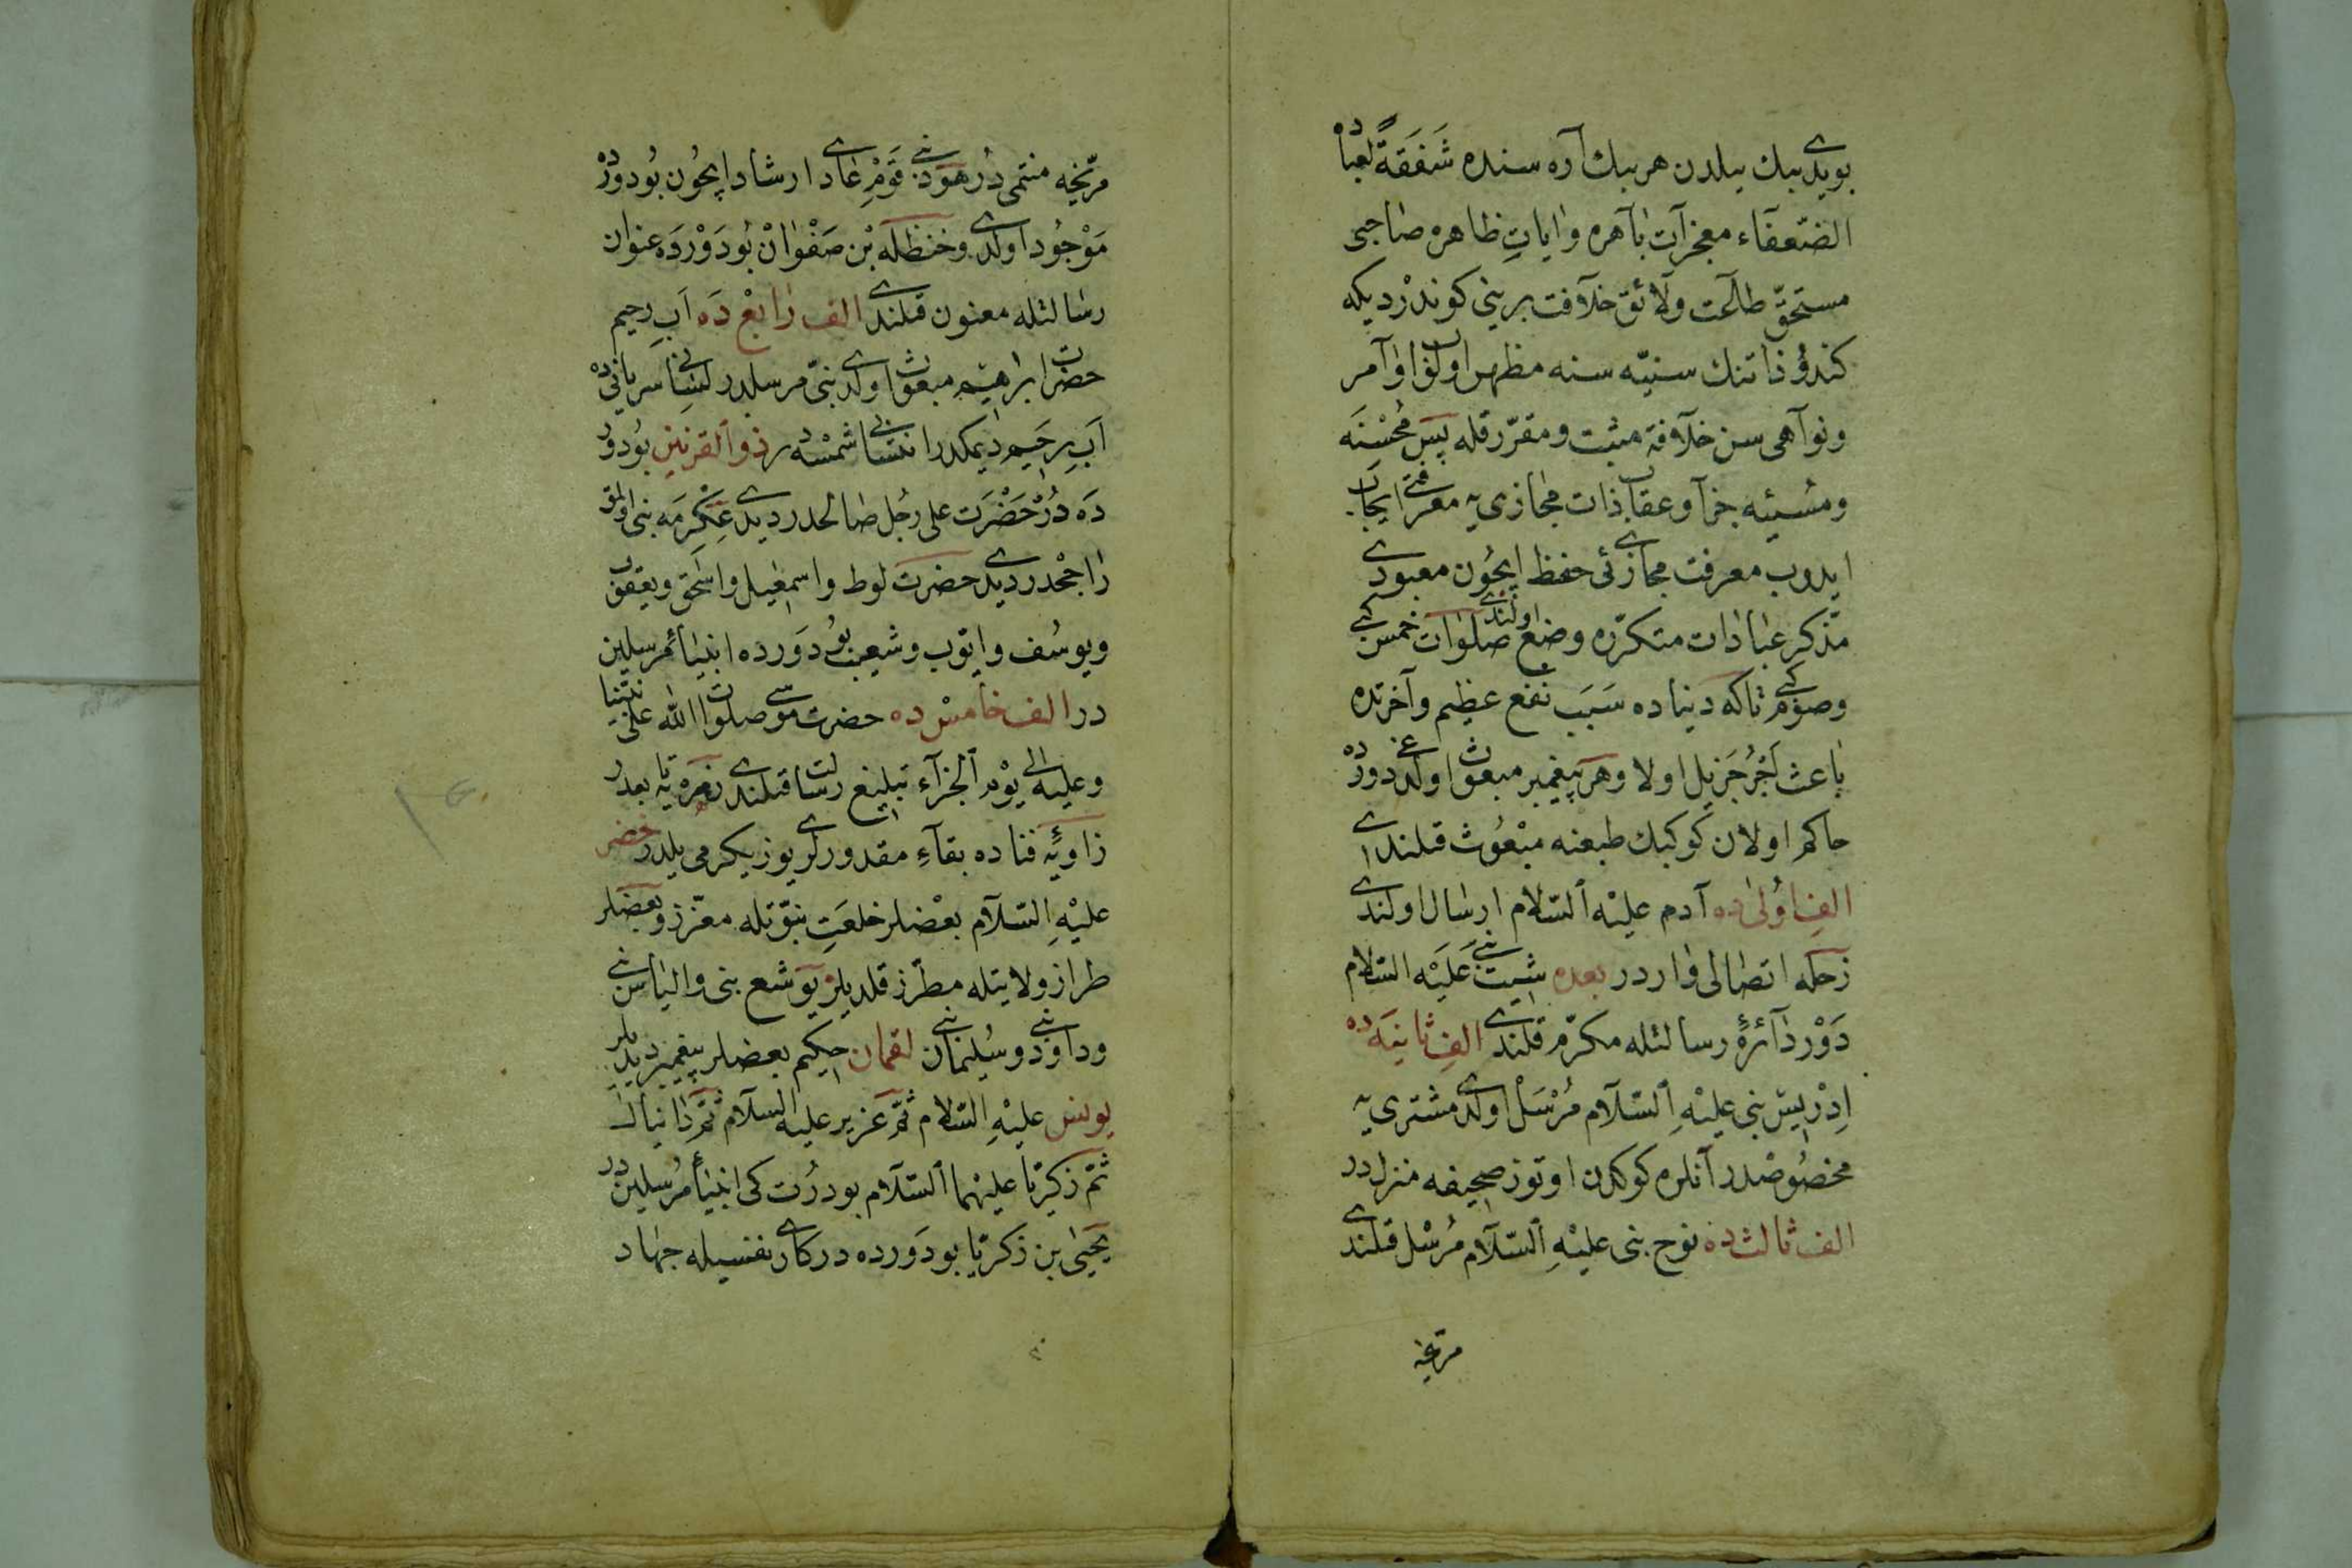 بويدى بيك ييلدن هر بيك آره سنده شَفَقَةً لعباده
الضّعفآء معجزآت باهره و اياتِ ظاهره صاحبى
مستحقّ طاعت ولائق خلآفت بريني كوندردیكه
كندو ذاتنك سنيّه سنه مظهر اولوب اوآمر
ونوآهى سن خلآفة مثبت ومقرّر قله پس مُحْسْنَه
ومُسيئه جزآ وعقاب ذات مجازى يه معرفتى ايجاب
ايدوب معرفت مجازئى حفظ ايچُون معبودى
مذكر عبادات متكرّره وضع اولندى صلوات خمس كبى
وصوم كبى تاكه دنياده سَبَب نفع عظيم وآخرتده
باعث اَجْرِ جَزيل اولا وهر پيغمبر مبعوث اولدغى دورده
حاكم اولان كوكبك طبعنه مبْعُوث قلندى
الفِ اُولىٰ ده آدم عليْه السّلام ارسال اولندى
زحله اتصالى واردر بعده شيت نبى عَلَيْه السّلام
دَوْر دآئرهٔ رسالتله مكرّم قلندى الفِ ثانيَه ده
اِدْريس نبى عليْهِ السّلآم مُرْسَلْ اولدى مشترى يه
مخصُوصْدر آنلره كوكدن اوتوز صحيفه منزلدر
الف ثالث ده نوح نبى عليْهِ السّلآم مُرْسل قلندى
مرّيخه
مرّيخيه منتمى دُر هود نبى قوْمِ عادى ارشاد ايچُون بُودورْده
مَوْجُود اولدى وحنظله بْن صَفْوانْ بُودَوْرَدَه عنوان
رسالتله معنون قلندى الف رابعْ دَه اَبِ رحيم
حضرت ابراهيم مبعوث اولدى نبىّ مرسلدر لسان سريانيده
اَبِ رحَيم ديمكدر انتسابى شمسه در ذو القرنين بُودور
دَه دُرْ حَضْرَت على رجُل صالحدر ديدى عِكْرِمَه نبى اولمق
راجحْدر ديدى حضرت لوط واسمعيل واسحق ويعقوب
ويوسُف وايّوب وشعيب بُو دَورده انبيأ مُرسلين
در الف خامسْ ده حضرت موسى صلوات الله على نبيّنا
وعليه الى يوْم الجزآء تبليغ رسالت قلندى زهره يه بعدر
زاويهٔ فناده بقآءِ مقدورلرى يوز يكرمى ييلدر خضر
عليْهِ السّلآم بعْضلر خلعَتِ نبوّتله معزّز و بعْضلر
طراز ولايتله مطرّز قلديلر يوَشع نبى والياس نبى
وداوُد نبى وسُليمان نبى لقمان حكيم بعضلر پيغمبر ديديلر
يونس عليْهِ السّلام ثمّ عزير عليه السلآم ثمّ دانيال
ثمّ زكريّا عليهما السّلآم بو درُت كى انبيأ مُرسليندر
يَحيٰى بن زكريّا بودَورده دركاى نفسيله جهاد